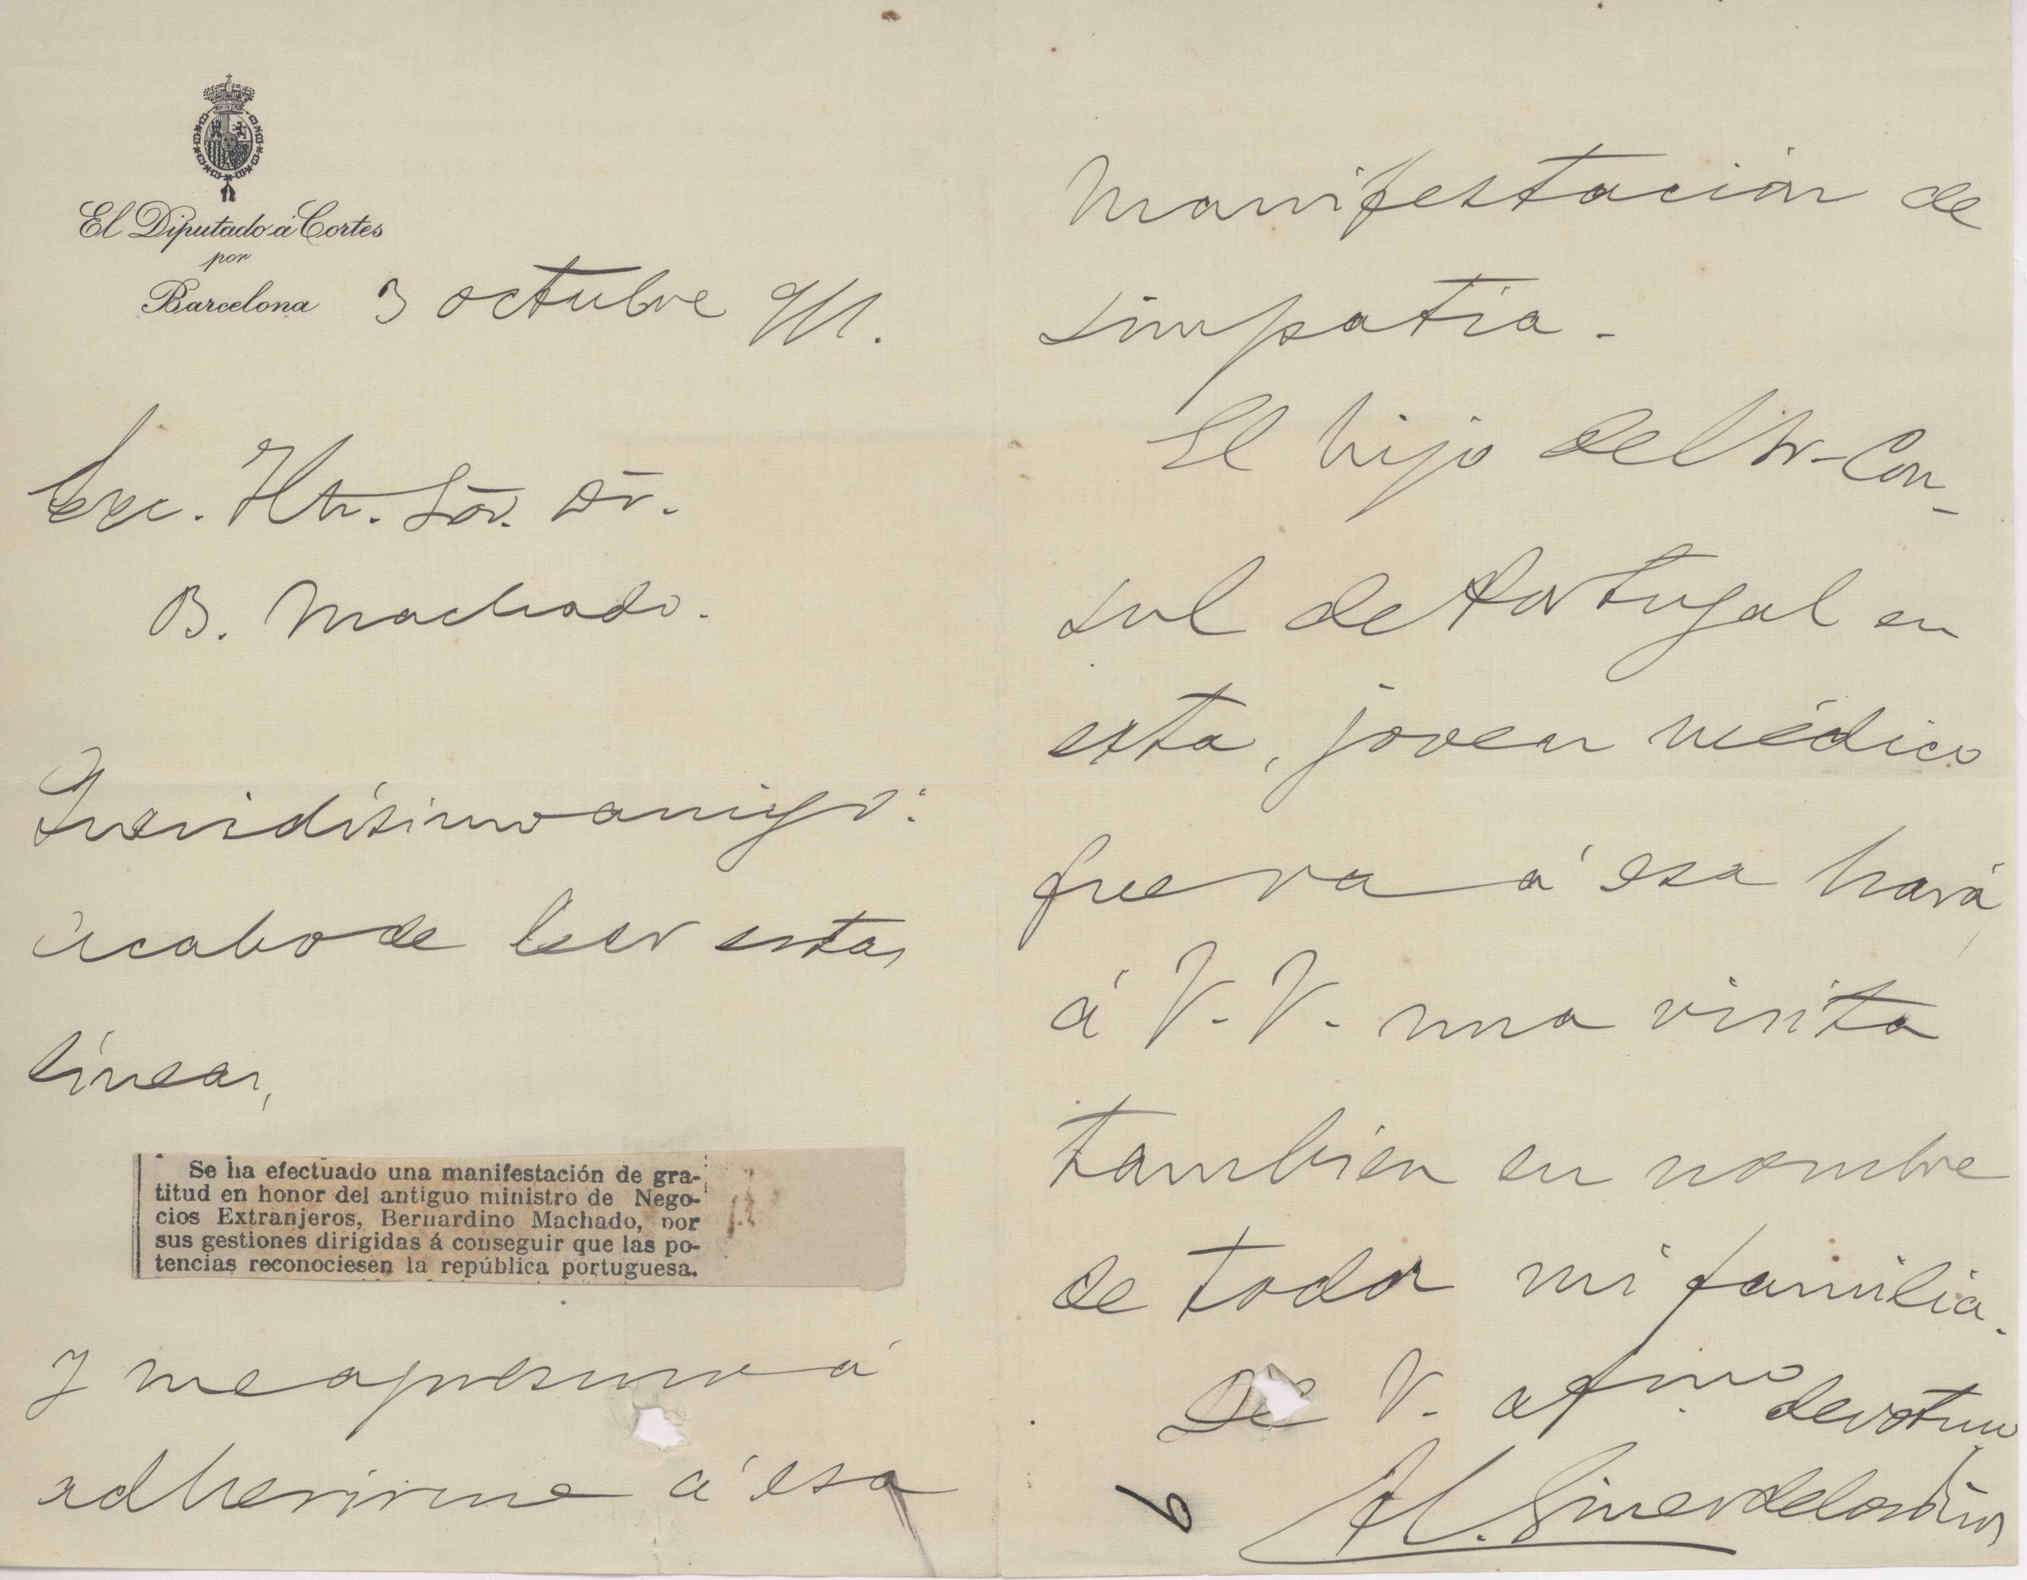 El Diputado á Cortes
por
Barcelona
3 octubre 911.
Exc. Sõr. Dr.
B. Machado.
Queridísimo amigo:
acabo de leer estas
líneas,
Se ha efectuado una manifestación de gra-
titud en honor del antiguo ministro de Nego-
cios Extranjeros, Bernardino Machado, por
sus gestiones dirigidas á conseguir que las po-
tencias reconociesen la república portuguesa.
y me apresuro á
adherirme á esa
manifestación de
simpatía.
El hijo del Sr. Con-
sul de Portugal en
esta, joven médico
que va á esa hará
á V. V. una visita
tambien en nombre
de toda mi familia.
De V. afmo. devotmo
H. Giner de los Ríos
6